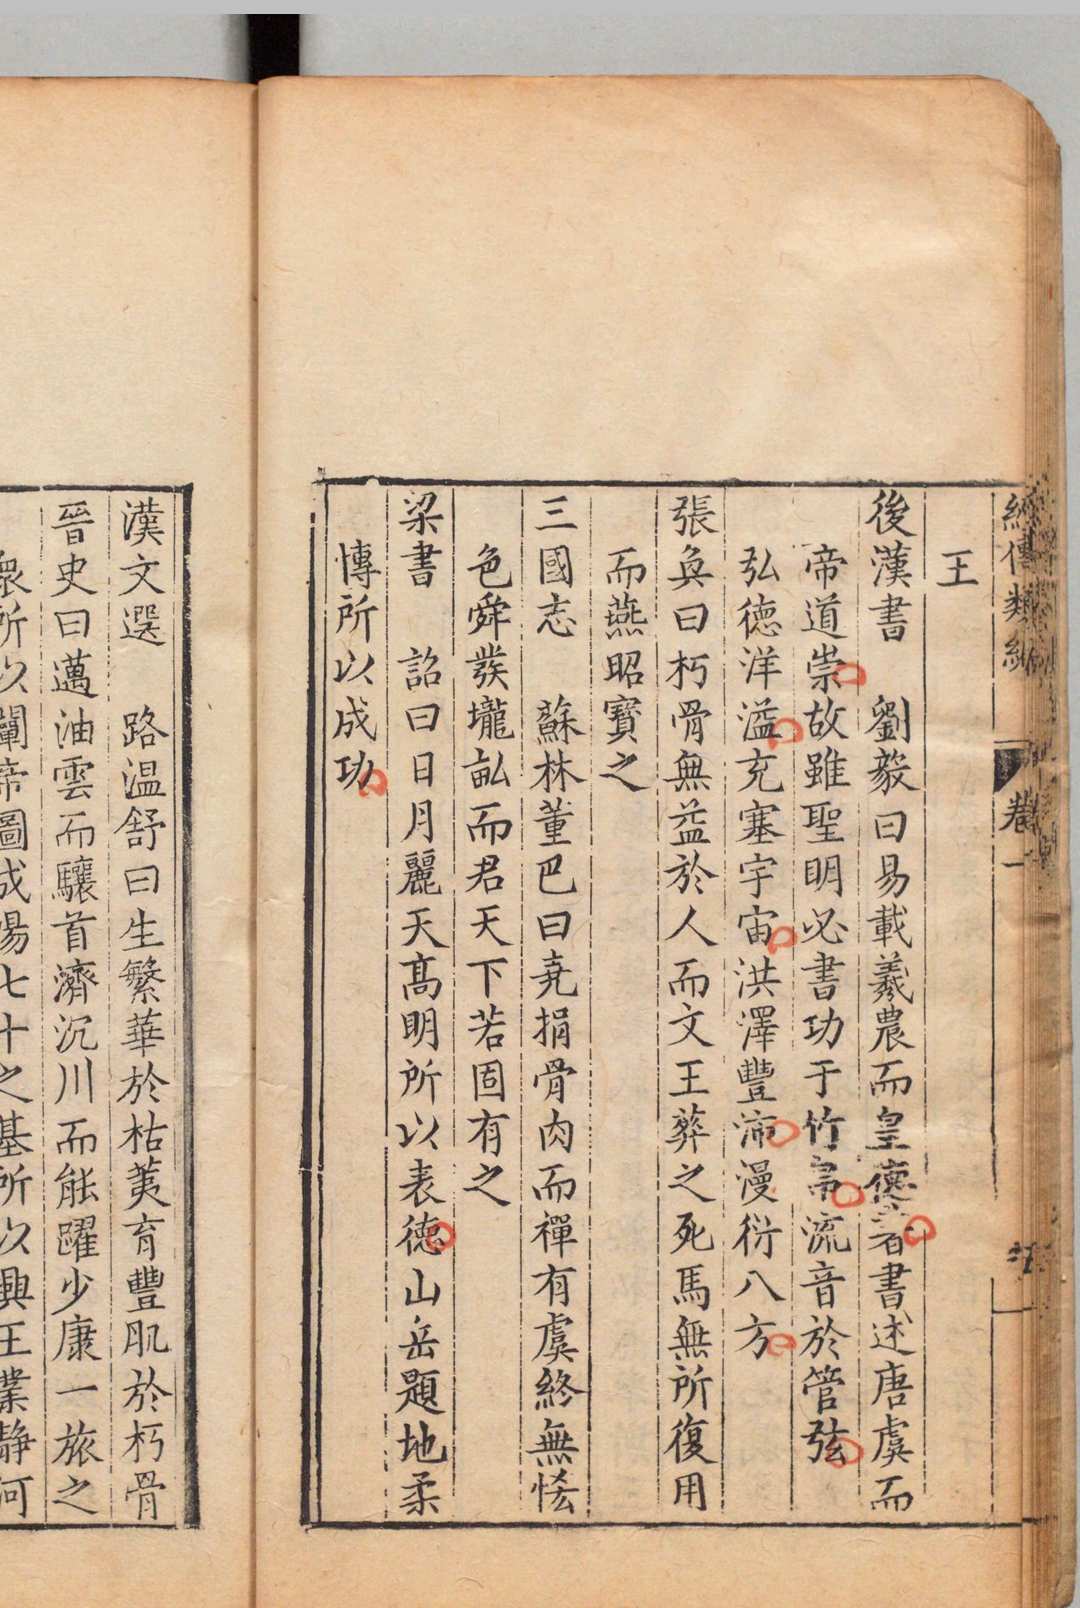 經傳類編
卷一
五
王
後漢書 劉毅曰易載羲農而皇德著書述唐虞而
帝道崇故雖聖明必書功于竹帛流音於管弦
弘德洋溢充塞宇宙洪澤豐沛漫衍八方
張奐曰朽骨無益於人而文王葬之死馬無所復用
而燕昭寶之
三國志 蘇林董巴曰堯捐骨肉而禪有虞終無恡
色舜發壠畝而君天下若固有之
梁書 詔曰日月麗天高明所以表德山岳題地柔
博所以成功
漢文選 路温舒曰生繁華於枯荑育豐肌於朽骨
晉史曰邁油雲而驤首濟沉川而能躍少康一旅之
衆所以闡帝圖成湯七十之基所以興王業靜河